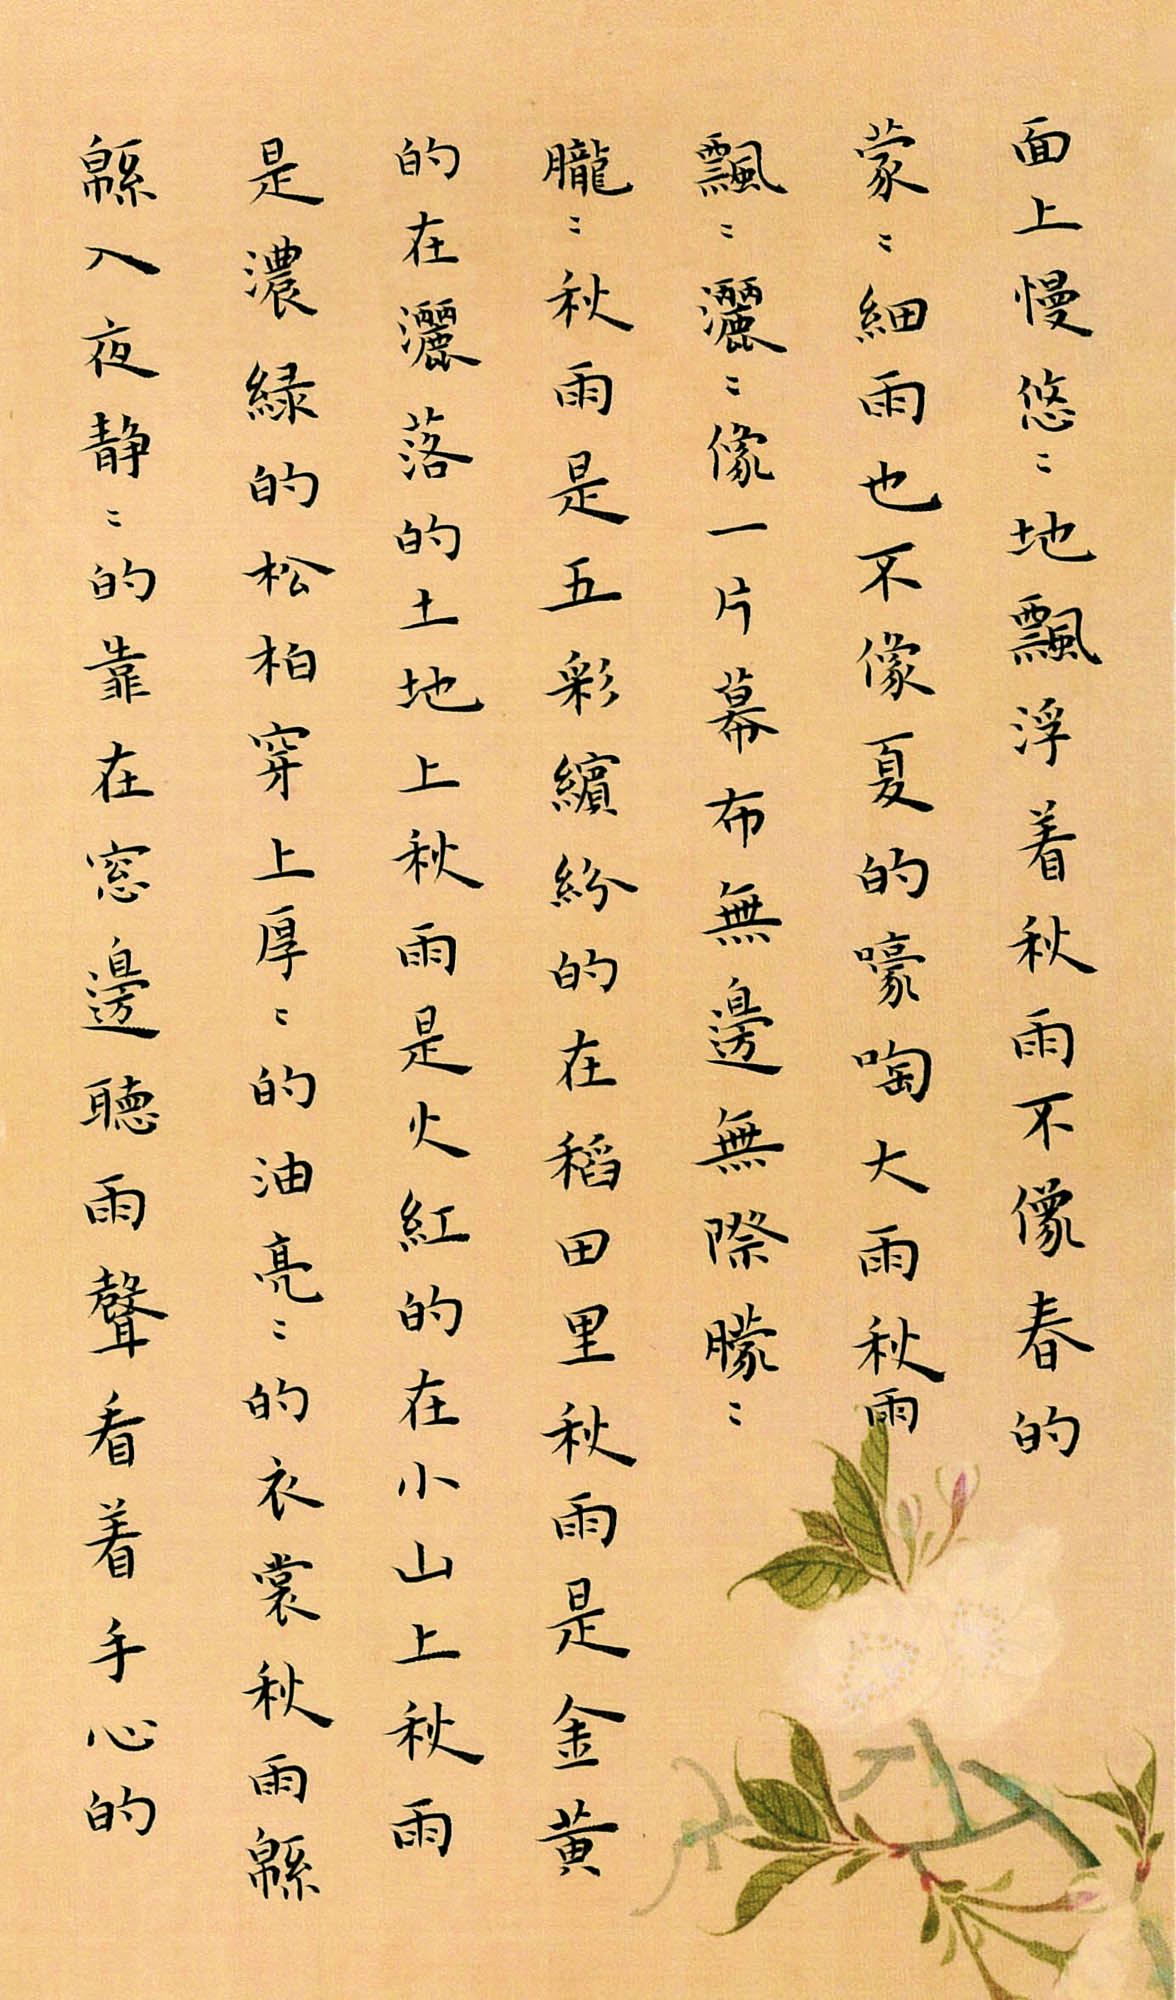 面上慢悠〻地飄浮着秋雨不像春的
蒙〻細雨也不像夏的嚎啕大雨秋雨
飄〻灑〻像一片幕布無邊無際朦〻
朧〻秋雨是五彩繽紛的在稻田里秋雨是金黄
的在灑落的土地上秋雨是火紅的在小山上秋雨
是濃緑的松柏穿上厚〻的油亮〻的衣裳秋雨緜
緜入夜静〻的靠在窓邊聽雨聲看着手心的